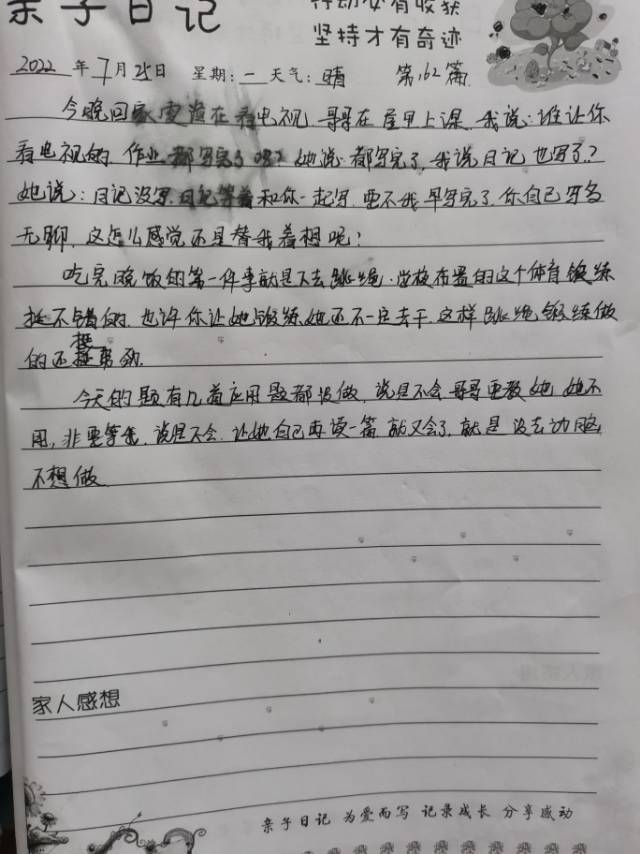 亲子日记
行动必有收获
坚持才有奇迹
2022年7月25日 星期:一 天气:晴 第162篇
今晚回家 在看电视,哥哥在屋里上课,我说:谁让你
看电视的,作业都写完了吗?她说:都写完了,我说日记也写了?
她说:日记没写,日记等着和你一起写,要不我早写完了,你自己写多
无聊,这怎么感觉还是替我着想呢!
吃完晚饭的第一件事就是下去跳绳,学校布置的这个体育锻练
挺不错的,也许你让她锻练她还不一定去干,这样跳绳锻练做
的还挺带劲.
今天的题有几道应用题都没做,说是不会,哥哥要教她,她不
用,非要等我,说是不会,让她自己再读一篇,就又会了,就是没去动脑
不想做
家人感想
亲子日记 为爱而写 记录成长 分享感动